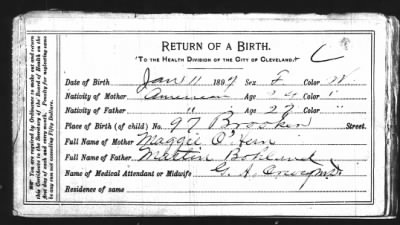 RETURN OF A BIRTH.
"TO THE HEALTH DIVISION OF THE CITY OF CLEVELAND." C
Date of Birth Jan 11 1897 Sex F Color W.
Nativity of Mother American Age Color "
Nativity of Father " Age 27 Color "
Place of Birth (of child) No. 97 Street.
Full Name of Mother Maggie O'Hern
Full Name of Father Martin
Name of Medical Attendant or Midwife G. A. M.D.
Residence of same
You are required by Ordinance to make out and return
this Certificate to the Secretary of the Board of Health on the
2nd day of each and every month. Penalty for neglecting same
is any sum not exceeding Fifty Dollars.